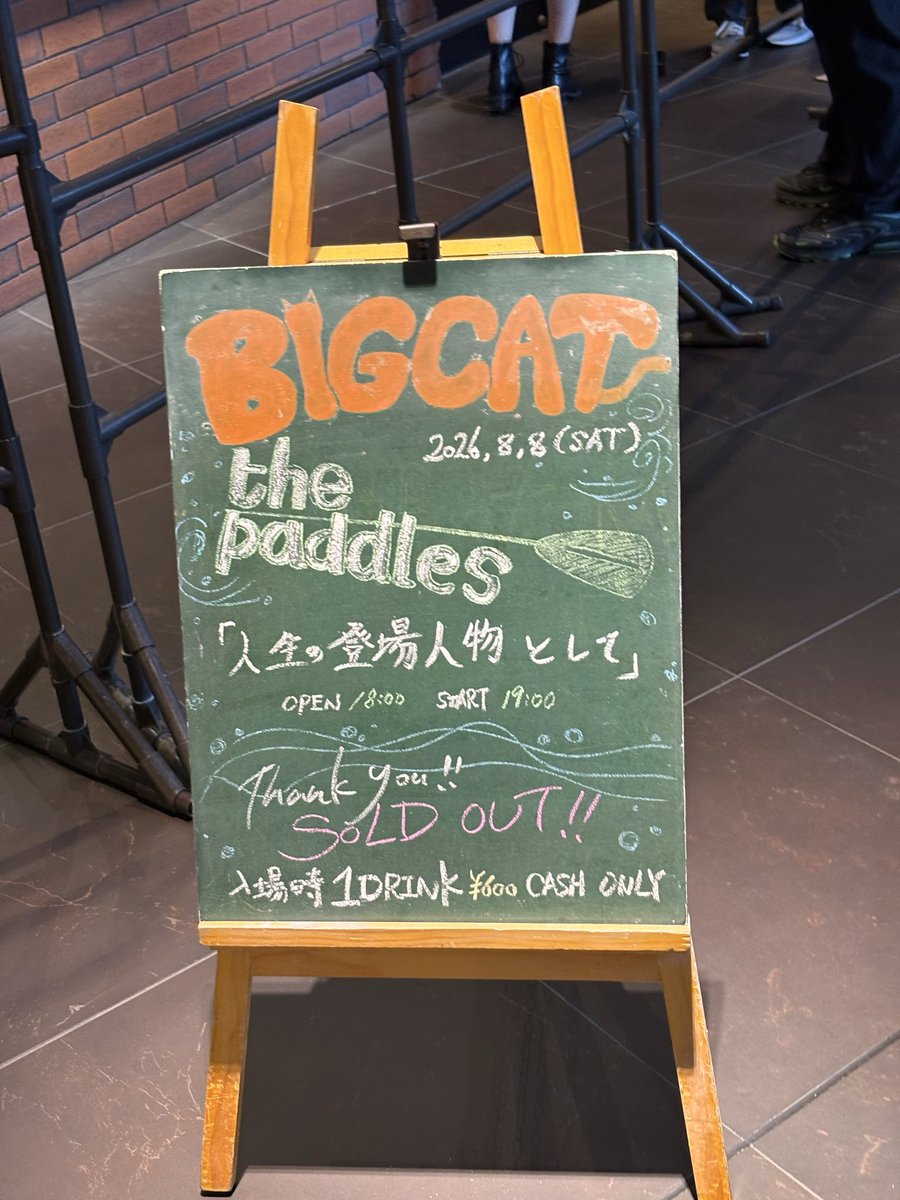 BIGCAT
2026.8.8(SAT)
the
paddles
「人生の登場人物として」
OPEN 18:00 START 19:00
Thank you!!
SOLD OUT!!
入場時 1DRINK ¥600 CASH ONLY